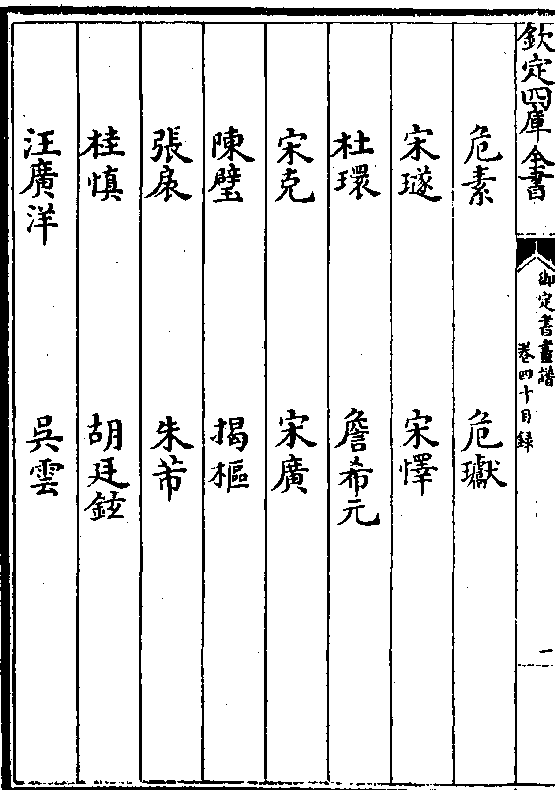 欽定四庫全書
御定書畫譜
卷四十目録
一
危素 危瓛
宋璲 宋懌
杜環 詹希元
宋克 宋廣
陳璧 揭樞
張㧑 朱芾
桂慎 胡廷鉉
汪廣洋 吳雲